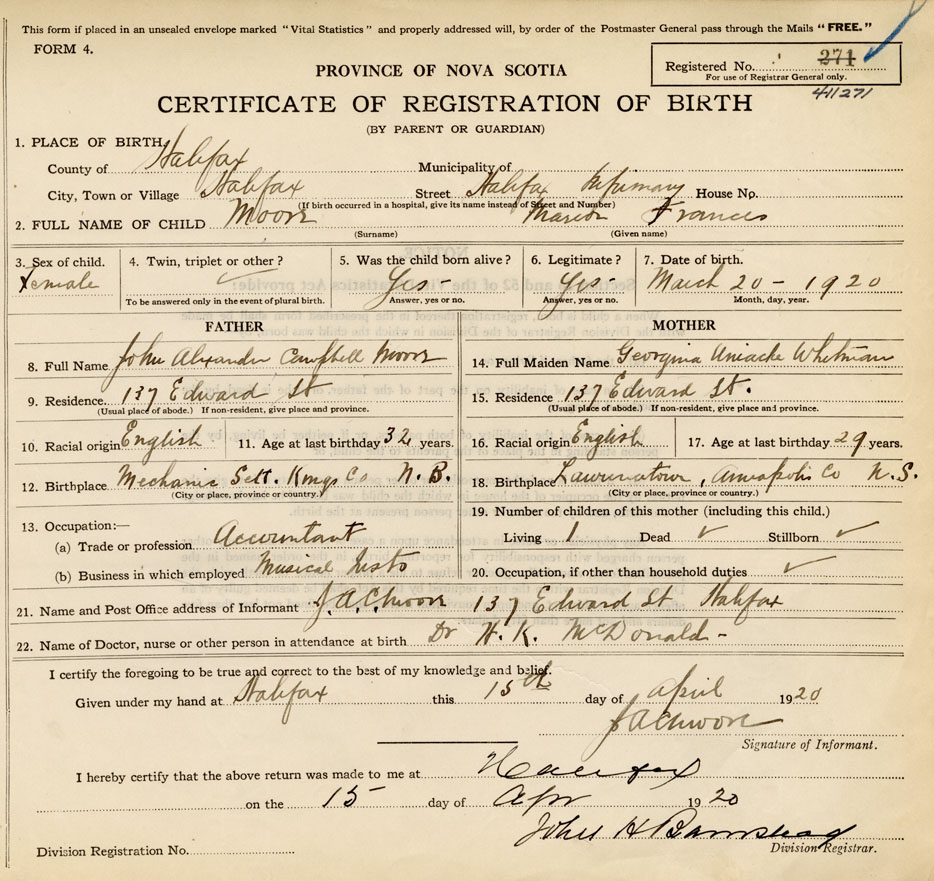 This form if placed in an unsealed envelope marked "Vital Statistics" and properly addressed will, by order of the Postmaster General pass through the Mails "FREE."
FORM 4.
Registered No. 271
For use of Registrar General only.
411271
PROVINCE OF NOVA SCOTIA
CERTIFICATE OF REGISTRATION OF BIRTH
(BY PARENT OR GUARDIAN)
1. PLACE OF BIRTH,
County of Halifax Municipality of
City, Town or Village Halifax Street Halifax Infirmary House No.
(If birth occurred in a hospital, give its name instead of Street and Number)
2. FULL NAME OF CHILD Moore Marion Frances
(Surname) (Given name)
3. Sex of child. 4. Twin, triplet or other? 5. Was the child born alive? 6. Legitimate? 7. Date of birth.
Female Yes - Yes - March 20 - 1920
To be answered only in the event of plural birth. Answer, yes or no. Answer, yes or no. Month, day, year.
FATHER MOTHER
8. Full Name John Alexander Campbell Moore 14. Full Maiden Name Georgina Uniacke Whitman
9. Residence. 137 Edward St 15. Residence 137 Edward St.
(Usual place of abode.) If non-resident, give place and province. (Usual place of abode.) If non-resident, give place and province.
10. Racial origin English 11. Age at last birthday 32 years. 16. Racial origin English 17. Age at last birthday 29 years.
12. Birthplace Mechanic Sett. Kings Co N.B. 18. Birthplace Lawrencetown, Annapolis Co N.S.
(City or place, province or country.) (City or place, province or country.)
13. Occupation:— 19. Number of children of this mother (including this child.)
(a) Trade or profession Accountant Living 1 Dead Stillborn
(b) Business in which employed Musical Insts 20. Occupation, if other than household duties
21. Name and Post Office address of Informant J.A.C. Moore 137 Edward St Halifax
22. Name of Doctor, nurse or other person in attendance at birth Dr H. K. McDonald -
I certify the foregoing to be true and correct to the best of my knowledge and belief.
Given under my hand at Halifax this 15th day of April 1920
J A C Moore
Signature of Informant.
I hereby certify that the above return was made to me at Halifax
on the 15 day of Apr 1920
John H Barnstead
Division Registrar.
Division Registration No.